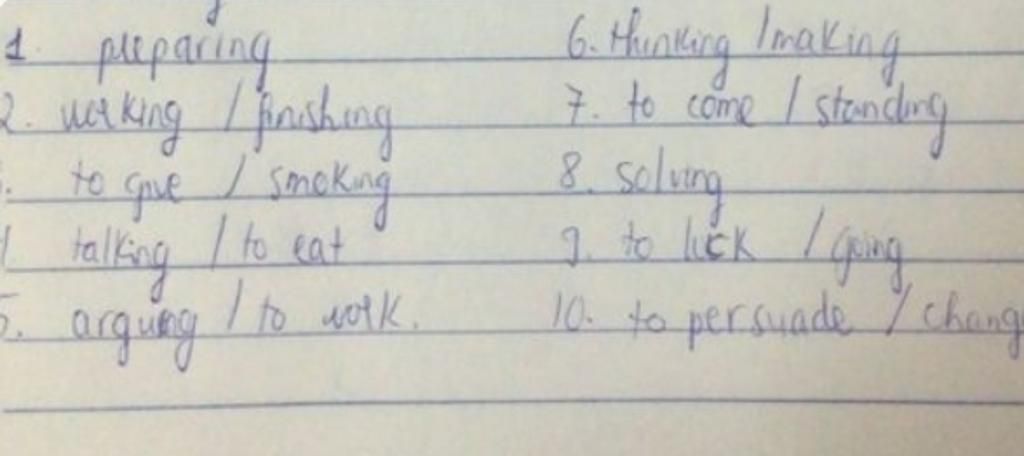 1. preparing
2. working / finishing
. to give / smoking
talking / to eat
5. arguing / to work.
6. thinking / making
7. to come / standing
8. solving
9. to lick / going
10. to persuade / chang